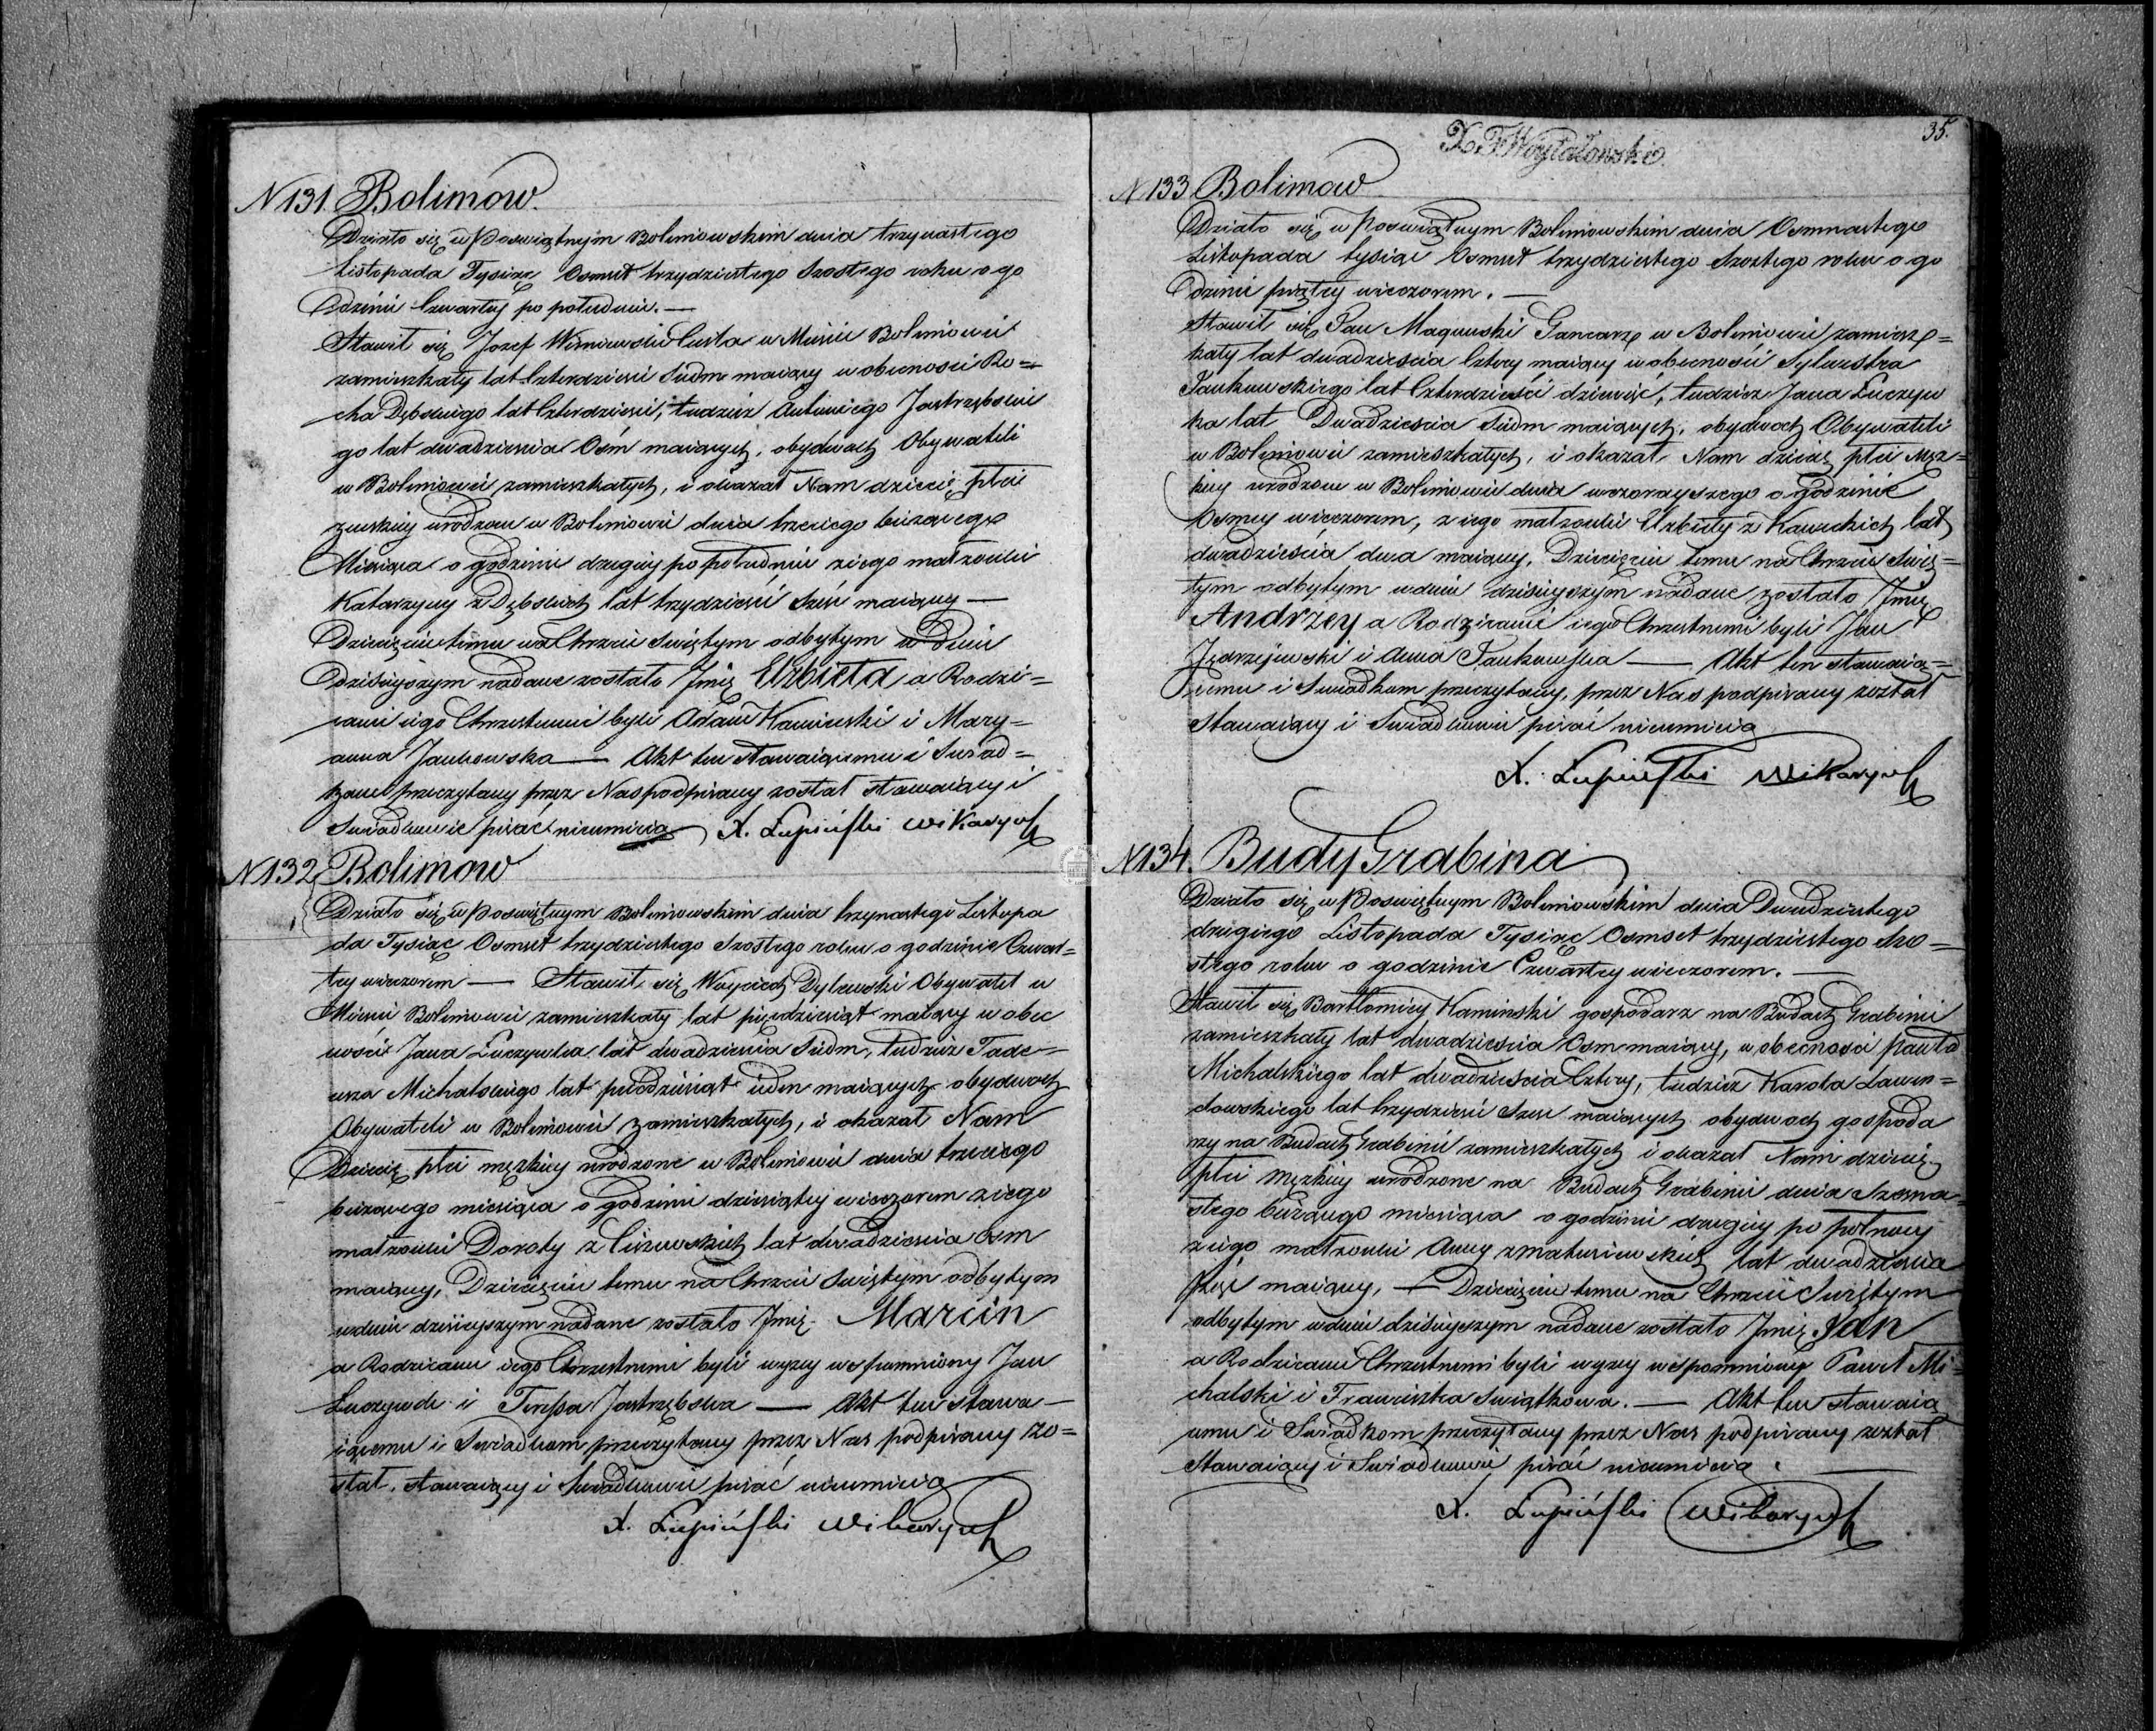 N 131. Bolimow.
Działo się w Poświątnym Bolimowskim dnia trzynastego
Listopada Tysiąc Osmset trzydziestego Szostego roku o go
dzinie Czwartey po południu. —
Stawił się Jozef Wisniewski Cieśla w Mieście Bolimowie
zamieszkały lat Czterdzieści Siedm maiący w obecności Ro=
cha Dębskiego lat Czterdzieści, tudzież Antoniego Jastrzębskie
go lat dwadzieścia Ośm maiących, obydwoch Obywateli
w Bolimowie zamieszkałych, i okazał Nam dziecie płci
żenskiey urodzone w Bolimowie dnia trzeciego bieżącego
Miesiąca o godzinie drugiey po południu z iego małżonki
Katarzyny z Dębskich lat trzydzieści Sześć maiącey —
Dziecięciu temu na Chrzcie Świętym odbytym w Dniu
dzisieyszym nadane zostało Imię Elżbieta a Rodzi=
cami iego Chrzestnemi byli Adam Kamieński i Mary=
anna Jankowska — Akt ten stawaiącemu i Świad=
kom przeczytany przez Nas podpisany został stawaiący i
Świadkowie pisać nieumieią X. Łupiński Wikaryusz
N 132 Bolimow
Działo się w Poświętnym Bolimowskim dnia trzynastego Listopa
da Tysiąc Osmset trzydziestego Szostego roku o godzinie Czwar=
tey wieczorem — Stawił się Woyciech Dylewski Obywatel w
Mieście Bolimowie zamieszkały lat pięćdziesiąt maiący w obec
ności Jana Łuczywka lat dwadzieścia Siedm, tudzież Tade=
usza Michalskiego lat piędziesiąt ieden maiących obydwoch
Obywateli w Bolimowie zamieszkałych, i okazał Nam
Dziecię płci męzkiey urodzone w Bolimowie dnia trzeciego
bieżącego miesiąca o godzinie dziesiątey wieczorem z iego
małżonki Doroty z lat dwadzieścia osm
maiącey, Dziecięciu temu na Chrzcie Świętym odbytym
w dniu dzisieyszym nadane zostało Imię Marcin
a Rodzicami iego Chrzestnemi byli wyzey wspomniony Jan
Łuczywek i Teressa Jastrzębska — Akt ten stawa—
iącemu i Świadkom przeczytany przez Nas podpisany zo=
stał, stawaiący i Świadkowie pisać nieumieią
X. Łupiński Wikaryusz
35.
N 133 Bolimow
Działo się w Poswiątnym Bolimowskim dnia Osmnastego
Listopada tysiąc Osmset trzydziestego Szostego roku o go
dzinie piątey wieczorem. —
Stawił się Jan Gancarz w Bolimowie zamiesz=
kały lat dwadzieścia Cztery maiący w obecności Sylwestra
lat Czterdzieści dziewięć, tudzież Jana Łuczyw
ka lat Dwadzieścia Siedm maiących, obydwoch Obywateli
w Bolimowie zamieszkałych, i okazał Nam dziecię płci Męz=
kiey urodzone w Bolimowie dnia wczorayszego o godzinie
Osmey wieczorem, z iego małżonki Elzbiety z Kaweckich lat
dwadzieścia dwa maiącey, Dziecięciu temu na Chrzcie Swię=
tym odbytym w dniu dzisieyszym nadane zostało Imię
Andrzey a Rodzicami iego Chrzestnemi byli Jan
Jędrzejewski i Anna — Akt ten stawaią=
cemu i Swiadkom przeczytany, przez Nas podpisany został
Stawaiący i Swiadkowie pisać nieumieią
X. Łupiński Wikaryusz
N 134. Budy Grabina
Działo się w Poświętnym Bolimowskim dnia Dwudziestego
drugiego Listopada Tysiąc Osmset trzydziestego Szo=
stego roku o godzinie Czwartey wieczorem. —
Stawił się Bartłomiey Kaminski gospodarz na Budach Grabinie
zamieszkały lat dwadzieścia Osm maiący, w obecności Pawła
Michalskiego lat dwadzieścia Cztery, tudzież Karola Lawen=
dowskiego lat trzydzieści Sześć maiących obydwoch gospoda
rzy na Budach Grabinie zamieszkałych i okazał Nam dziecię
płci Męzkiey urodzone na Budach Grabinie dnia Szesna=
stego bieżącego miesiąca o godzinie drugiey po połnocy
z iego małżonki Anny z lat dwadzieścia
maiącey, — Dziecięciu temu na Chrzcie Swiętym
odbytym w dniu dzisieyszym nadane zostało Imię Jan
a Rodzicami Chrzestnemi byli wyzey wspomniony Paweł Mi=
chalski i Franciszka Swiątkowa. — Akt ten stawaią
cemu i Swiadkom przeczytany przez Nas podpisany został
Stawaiący i Swiadkowie pisać nieumieią. —
X. Łupiński Wikaryusz